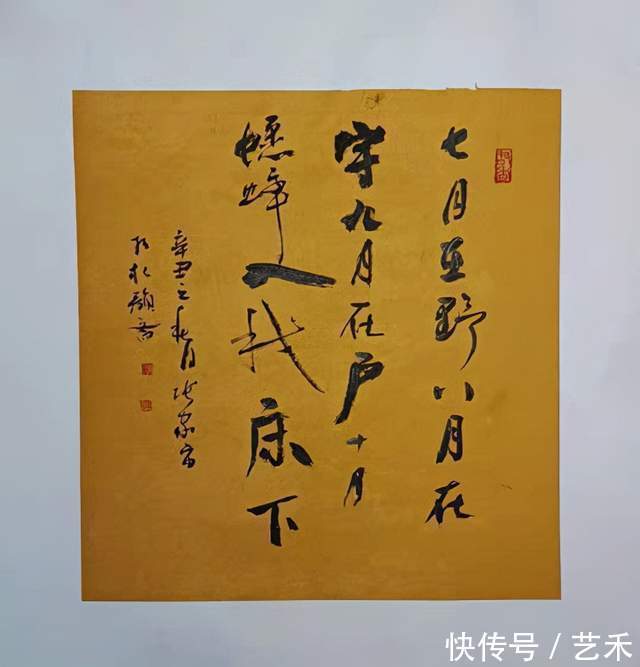 七月在野八月在
宇九月在户十月
蟋蟀入我床下
辛丑之
快传号 / 艺禾